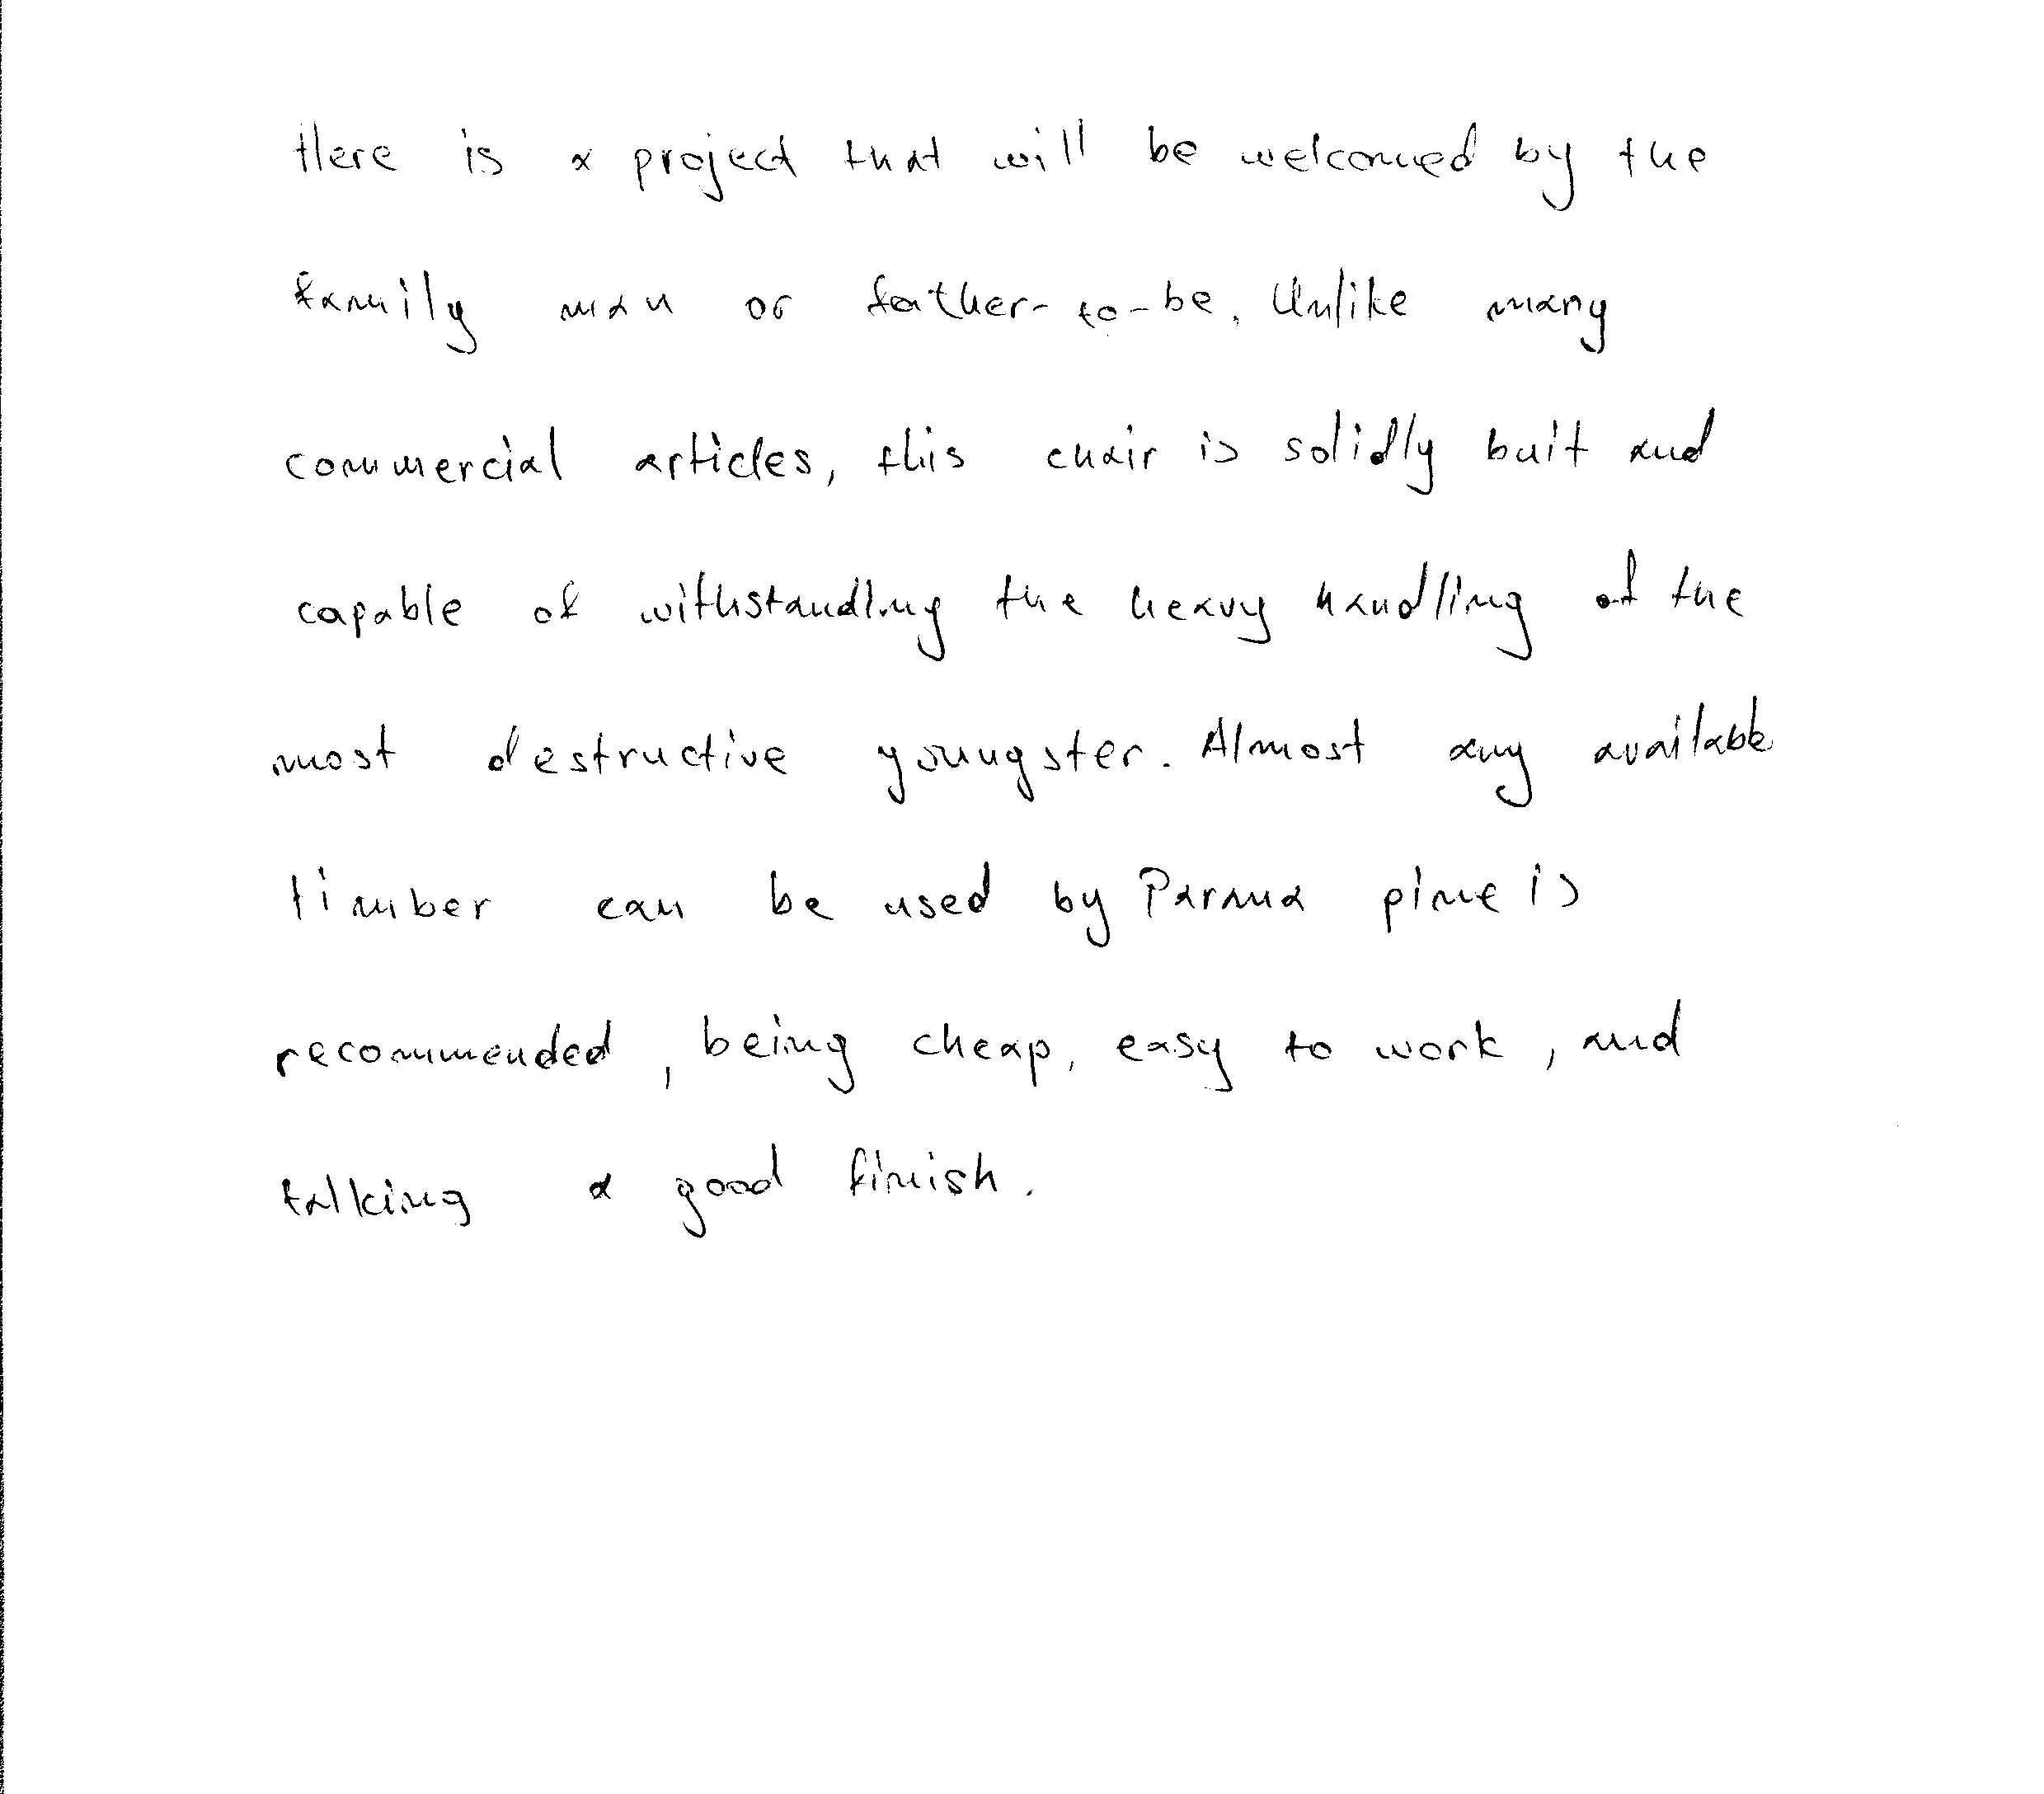 Here is a project that will be welcomed by the
family man or father-to-be. Unlike many
commercial articles, this chair is solidly buit and
capable of withstanding the heavy handling of the
most destructive youngster. Almost any available
timber can be used by Parana pine is
recommended, being cheap, easy to work, and
talking a good finish.